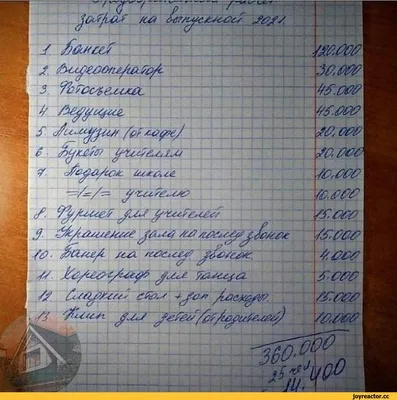 затрат на выпускной 2021.
1 Банкет 120.000
2. Видеооператор 30.000
3 Фотосъемка 45.000
4. Ведущие 45.000
5. Лимузин (от кафе) 20.000
6. Букеты учителям 20.000
7. Подарок школе 10.000
=/=/= учителю 10.000
8. Фуршет для учителей 15.000
9. Украшение зала на послед звонок 15.000
10. Банер на послед. звонок 4.000
11. Хореограф для танца 5.000
12. Сладкий стол + доп расходы. 15.000
13. Клип для детей (от родителей) 10.000
360.000
25 чел
14.400
joyreactor.cc